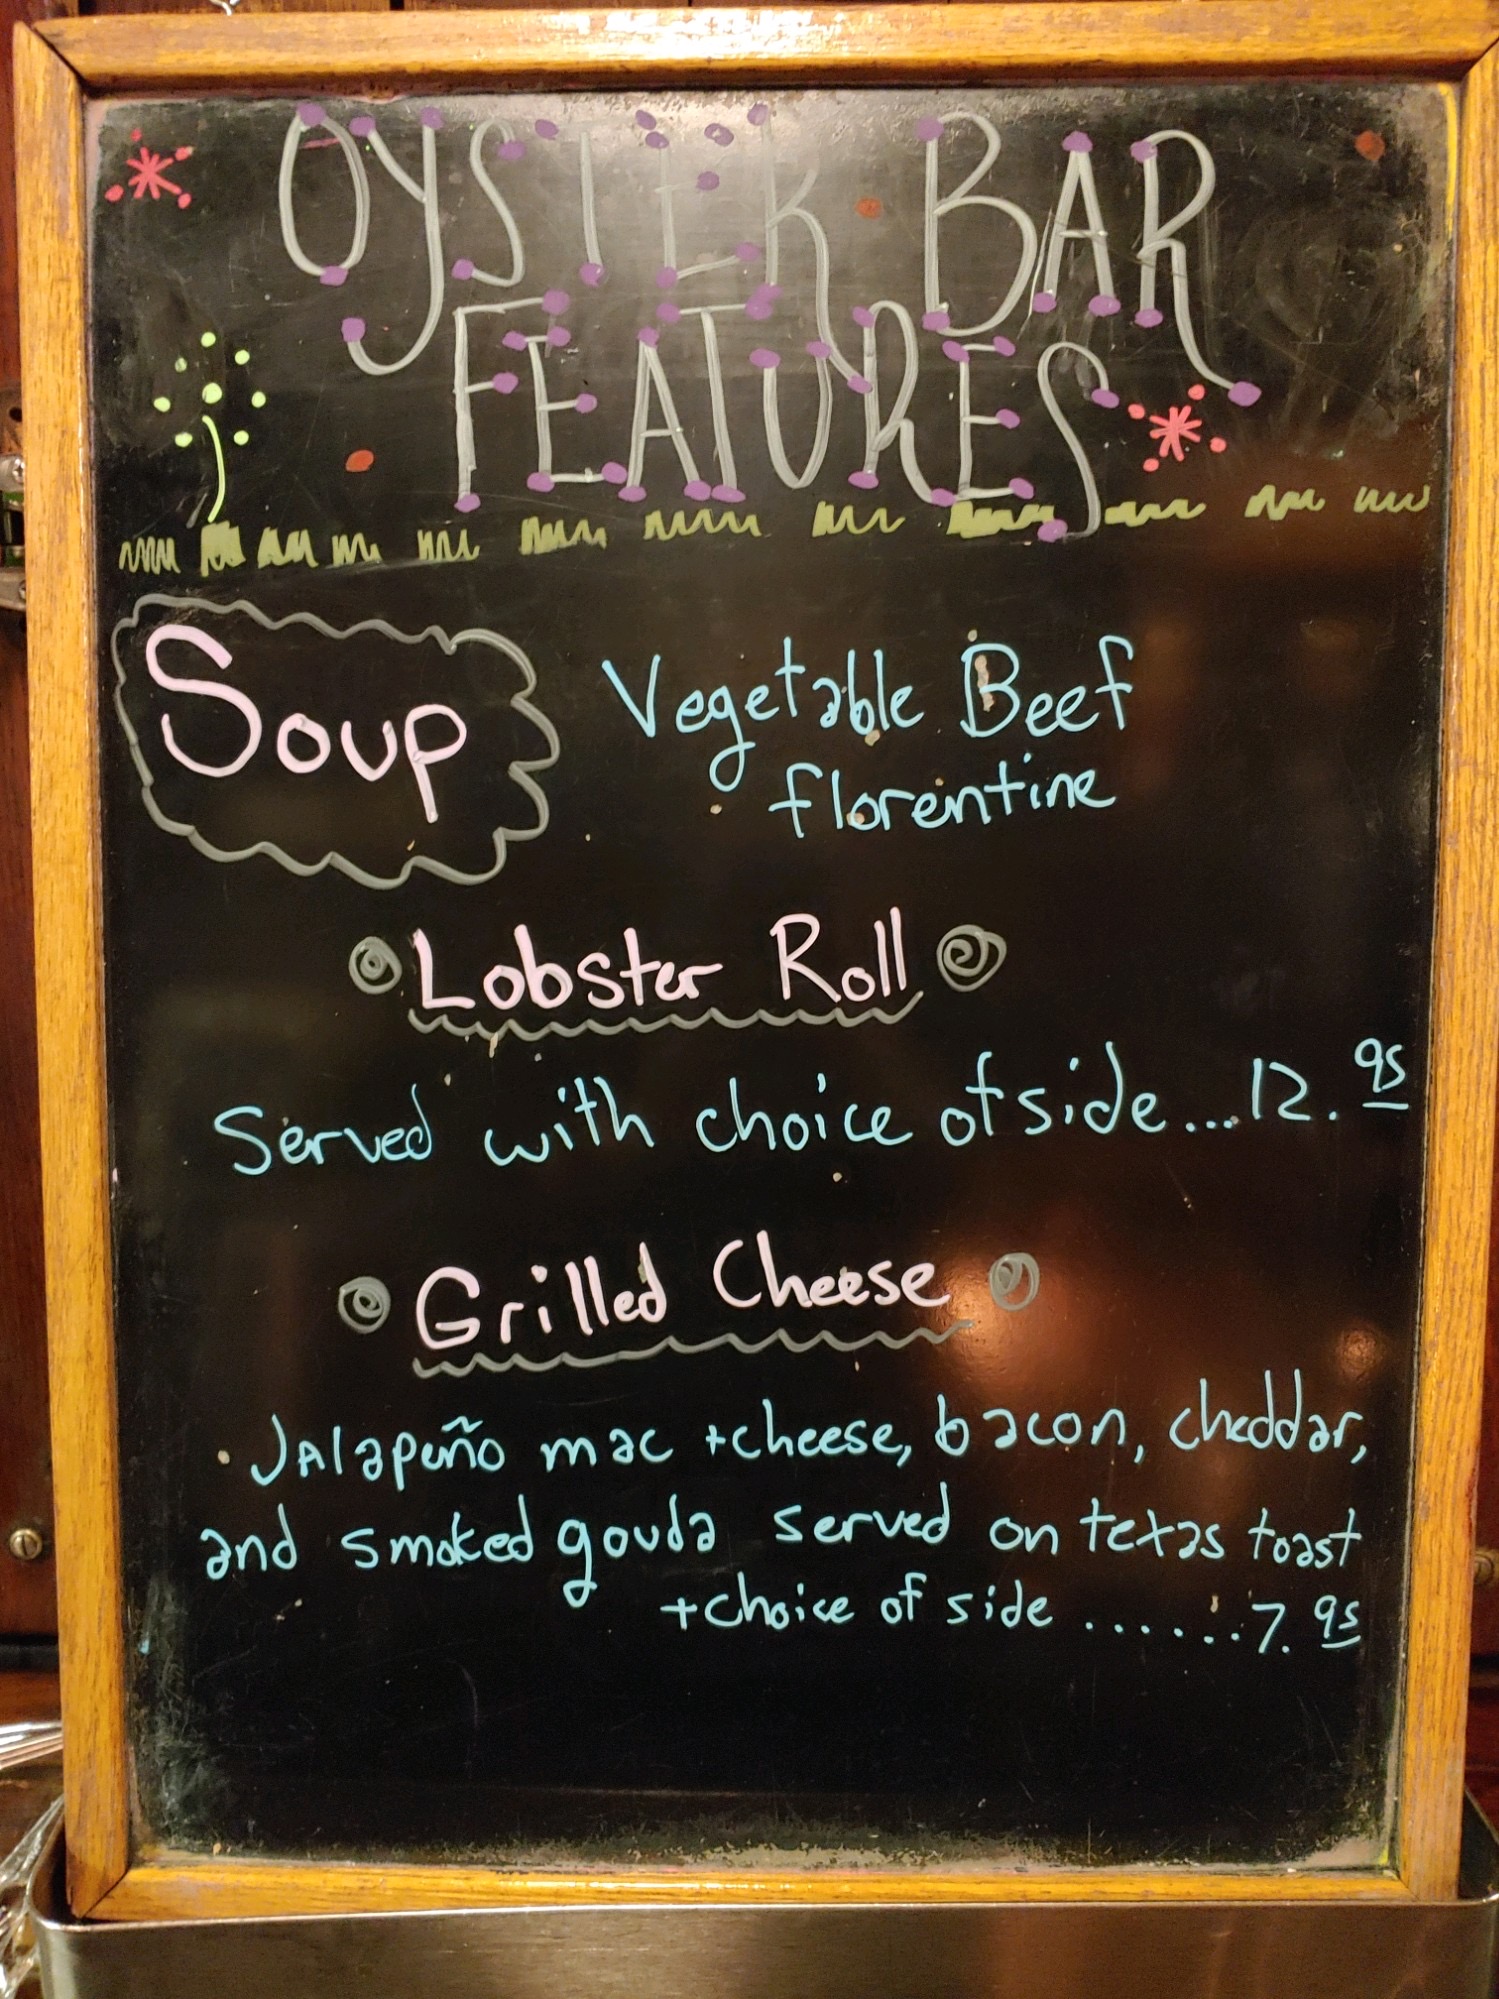 OYSTER BAR
FEATURES
Soup
Vegetable Beef
florentine
Lobster Roll
Served with choice of side...12.95
Grilled Cheese
Jalapeño mac +cheese, bacon, cheddar,
and smoked gouda served on texas toast
+choice of side .......7.95